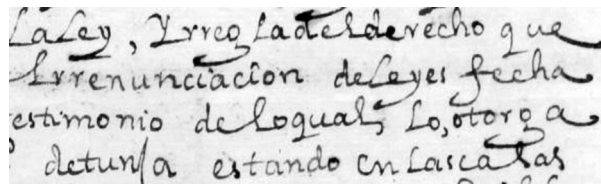 La Ley, Yrregla del derecho que
Yrrenunciacion de Leyes fecha
estimonio de Loqual, Lo, otorga
de tunja estando en Las casas